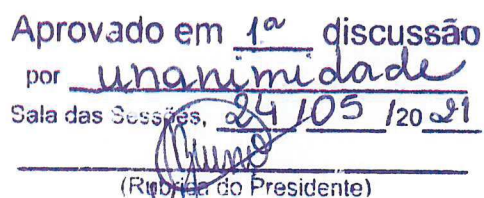 Aprovado em 1ª discussão
por unanimidade
Sala das Sessões, 24 / 05 / 20 21
(Rubrica do Presidente)